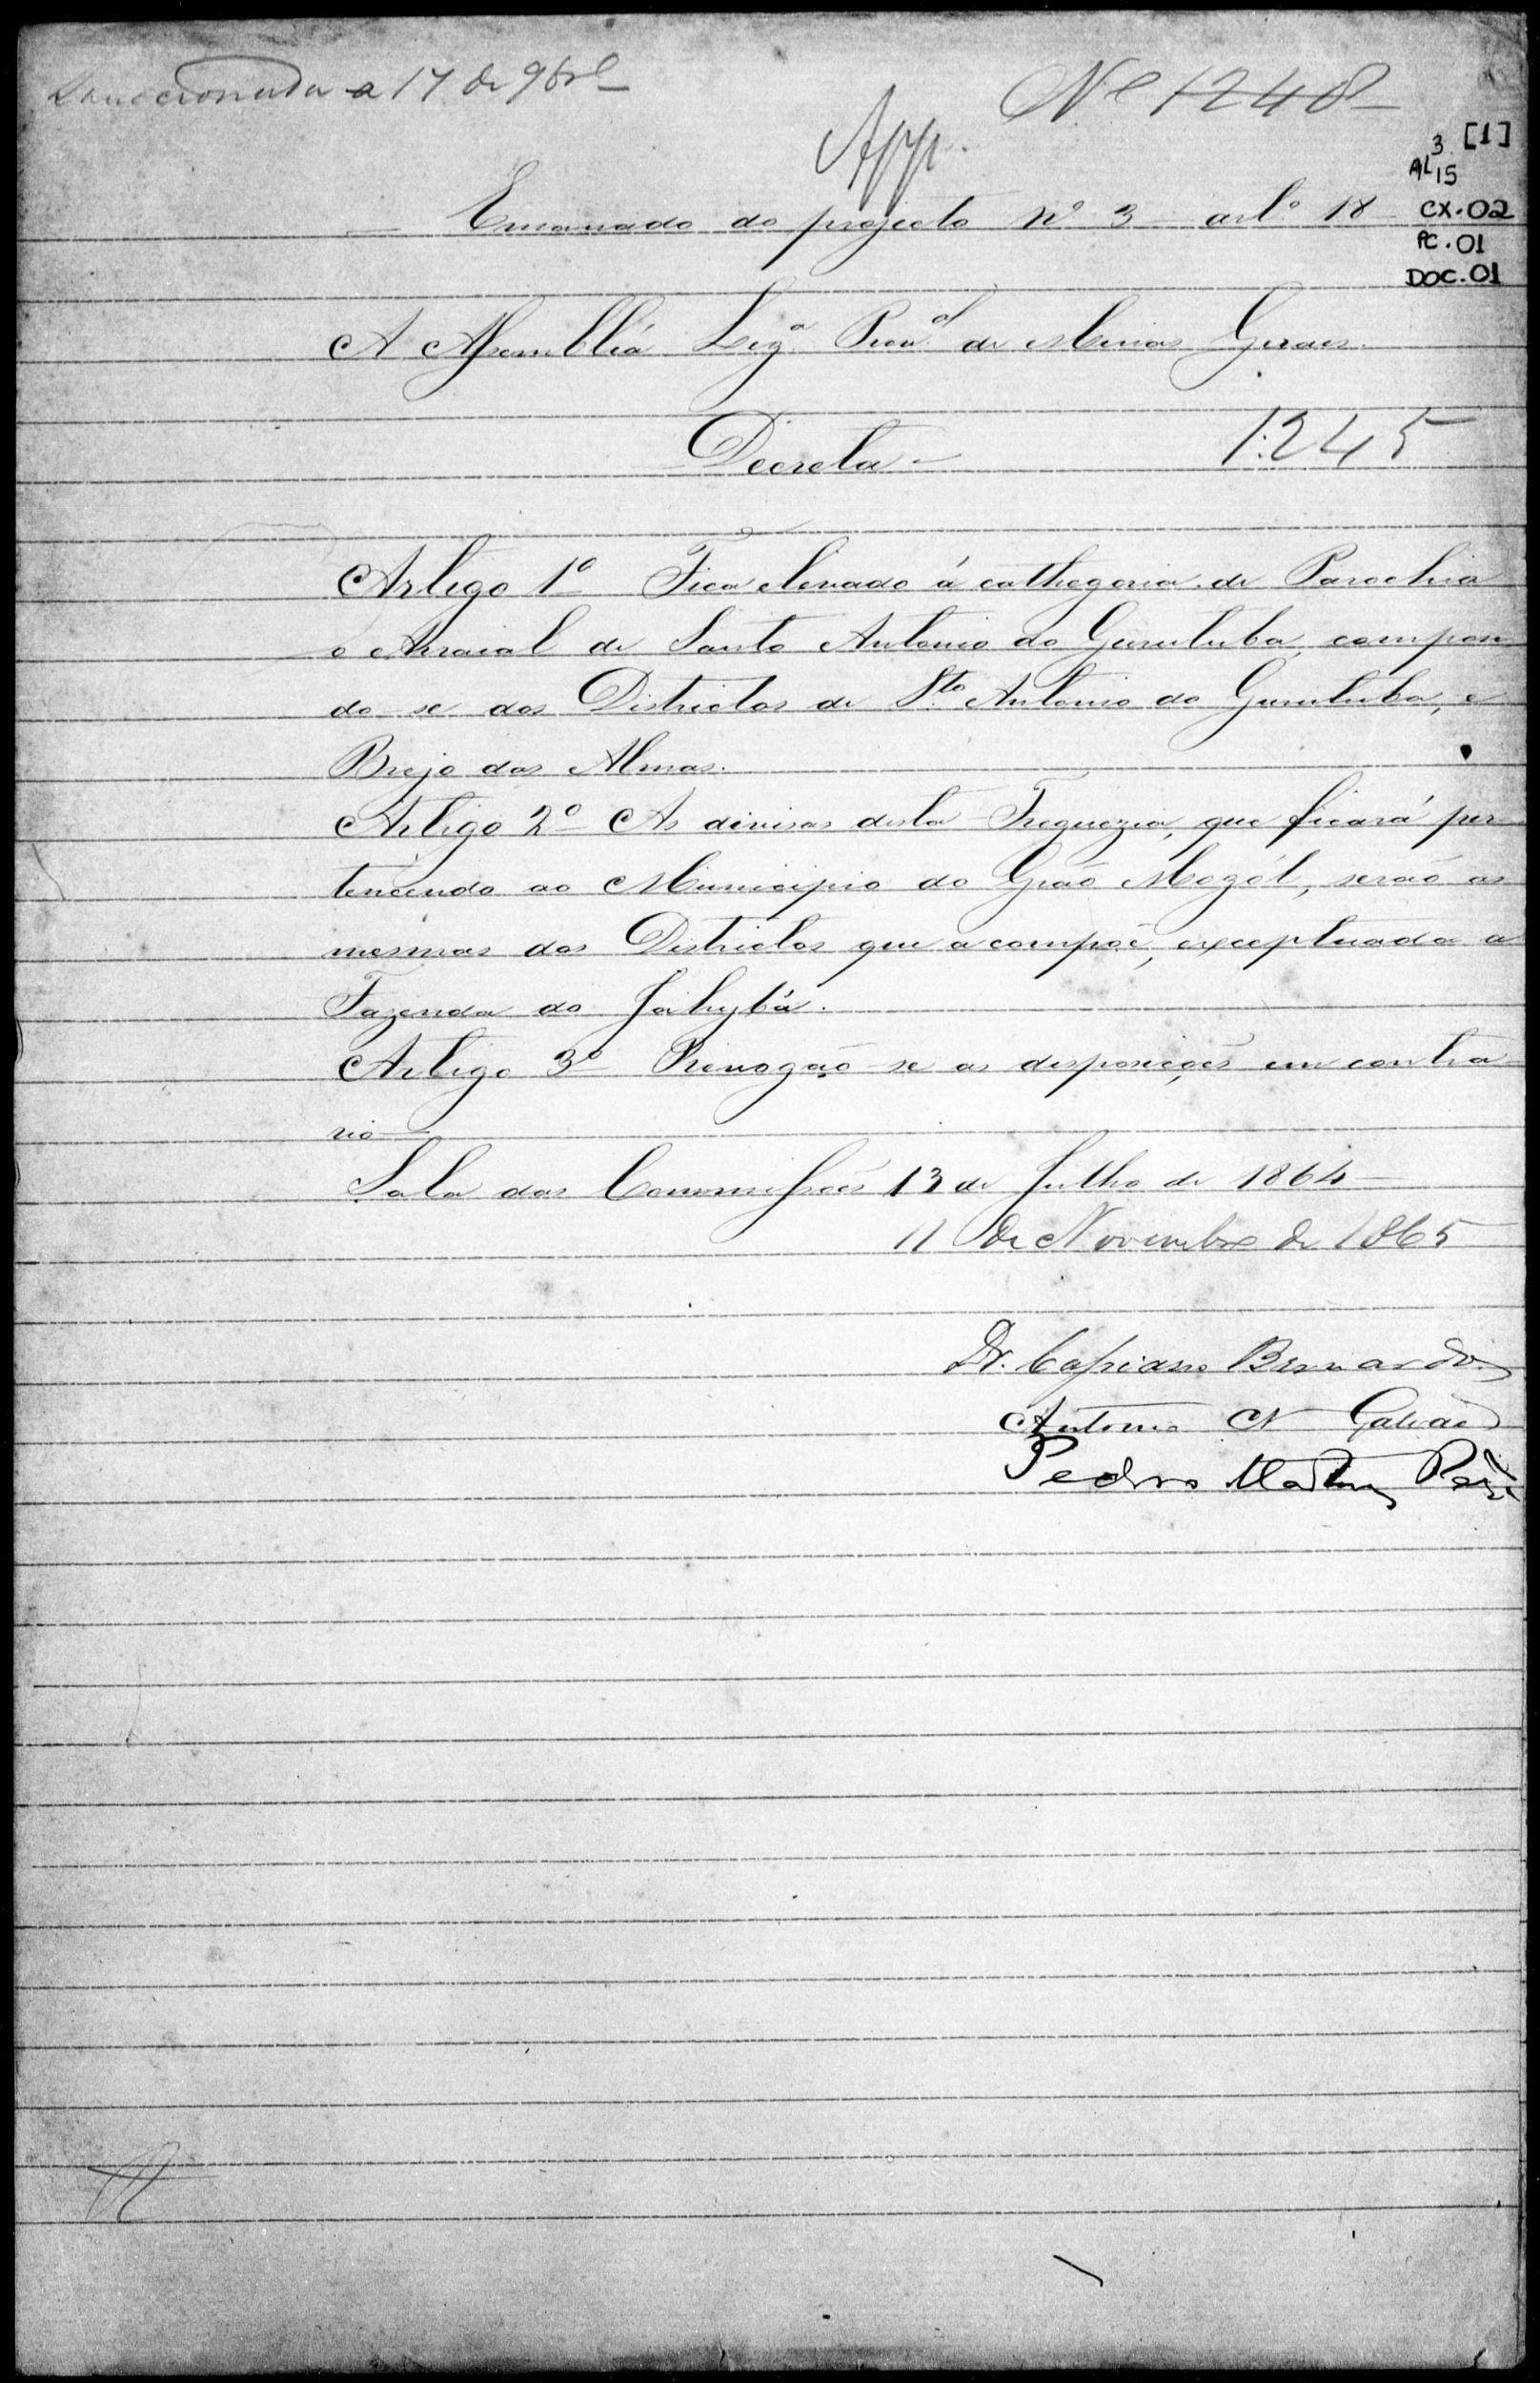 Sanccionada a 17 de 9br.
Nº 1248
App.
3 [1]
AL 15
CX.02
PC.01
DOC.01
Emanado do projecto nº 3 art.º 18
A Assembléa Leg.ª Prov.al de Minas Geraes
Decreta
1:245
Artigo 1º Fica elevado á cathegoria de Parochia
o Arraial de Santo Antonio do Gurutuba, compon
do-se dos Districtos de S.to Antonio do Gurutuba, e
Brejo das Almas.
Artigo 2º As divisas desta Freguezia, que ficará per
tencendo ao Municipio do Grão Mogól, serão as
mesmas dos Districtos que a compoê, exceptuada a
Fazenda do Jahybá.
Artigo 3º Revogaõ-se as disposiçoẽs em contra
rio
Sala das Commissoẽs 13 de Julho de 1864
11 de Novembro de 1865
Dr. Cassiano Bernardo
Antonio N Galvaõ
Pedro Martins